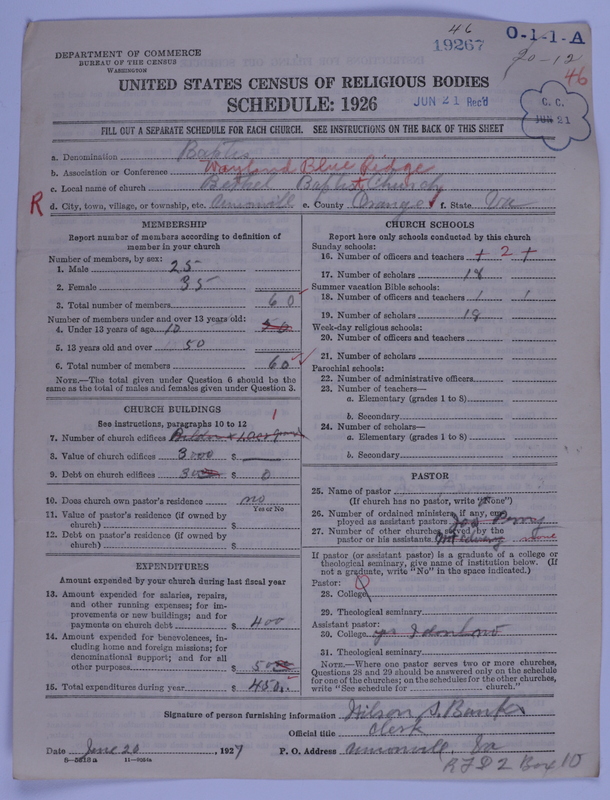 46
19267
O-1-1-A
20-12
46
DEPARTMENT OF COMMERCE
BUREAU OF THE CENSUS
WASHINGTON
UNITED STATES CENSUS OF RELIGIOUS BODIES
SCHEDULE: 1926
JUN 21 Rec'd
C. C.
JUN 21
FILL OUT A SEPARATE SCHEDULE FOR EACH CHURCH. SEE INSTRUCTIONS ON THE BACK OF THIS SHEET
a. Denomination Baptis
b. Association or Conference Wayland Blue Ridge
c. Local name of church Bethel Baptist Church
R d. City, town, village, or township, etc. Unionville e. County Orange f. State Va
MEMBERSHIP
Report number of members according to definition of
member in your church
Number of members, by sex:
1. Male 25
2. Female 35
3. Total number of members 60
Number of members under and over 13 years old:
4. Under 13 years of age 10
5. 13 years old and over 50
6. Total number of members 60
NOTE.—The total given under Question 6 should be the
same as the total of males and females given under Question 3.
CHURCH BUILDINGS
See instructions, paragraphs 10 to 12
7. Number of church edifices 1
8. Value of church edifices 3000 $
9. Debt on church edifices $ 0
10. Does church own pastor's residence no
Yes or No
11. Value of pastor's residence (if owned by
church) $
12. Debt on pastor's residence (if owned by
church) $
EXPENDITURES
Amount expended by your church during last fiscal year
13. Amount expended for salaries, repairs,
and other running expenses; for im-
provements or new buildings; and for
payments on church debt $ 400
14. Amount expended for benevolences, in-
cluding home and foreign missions; for
denominational support; and for all
other purposes $ 50
15. Total expenditures during year $ 450
CHURCH SCHOOLS
Report here only schools conducted by this church
Sunday schools:
16. Number of officers and teachers 2
17. Number of scholars 18
Summer vacation Bible schools:
18. Number of officers and teachers 1 1
19. Number of scholars 18
Week-day religious schools:
20. Number of officers and teachers
21. Number of scholars
Parochial schools:
22. Number of administrative officers
23. Number of teachers—
a. Elementary (grades 1 to 8)
b. Secondary
24. Number of scholars—
a. Elementary (grades 1 to 8)
b. Secondary
PASTOR
25. Name of pastor
(If church has no pastor, write "None")
26. Number of ordained ministers, if any, em-
ployed as assistant pastors
27. Number of other churches served by the
pastor or his assistants none
If pastor (or assistant pastor) is a graduate of a college or
theological seminary, give name of institution below. (If
not a graduate, write "No" in the space indicated.)
Pastor:
28. College
29. Theological seminary
Assistant pastor:
30. College
31. Theological seminary
NOTE.—Where one pastor serves two or more churches,
Questions 28 and 29 should be answered only on the schedule
for one of the churches; on the schedules for the other churches,
write "See schedule for church."
Signature of person furnishing information Wilson S. Banks
Official title Clerk
Date June 20, 1927 P. O. Address Unionville, Va
RFD 2 Box 10